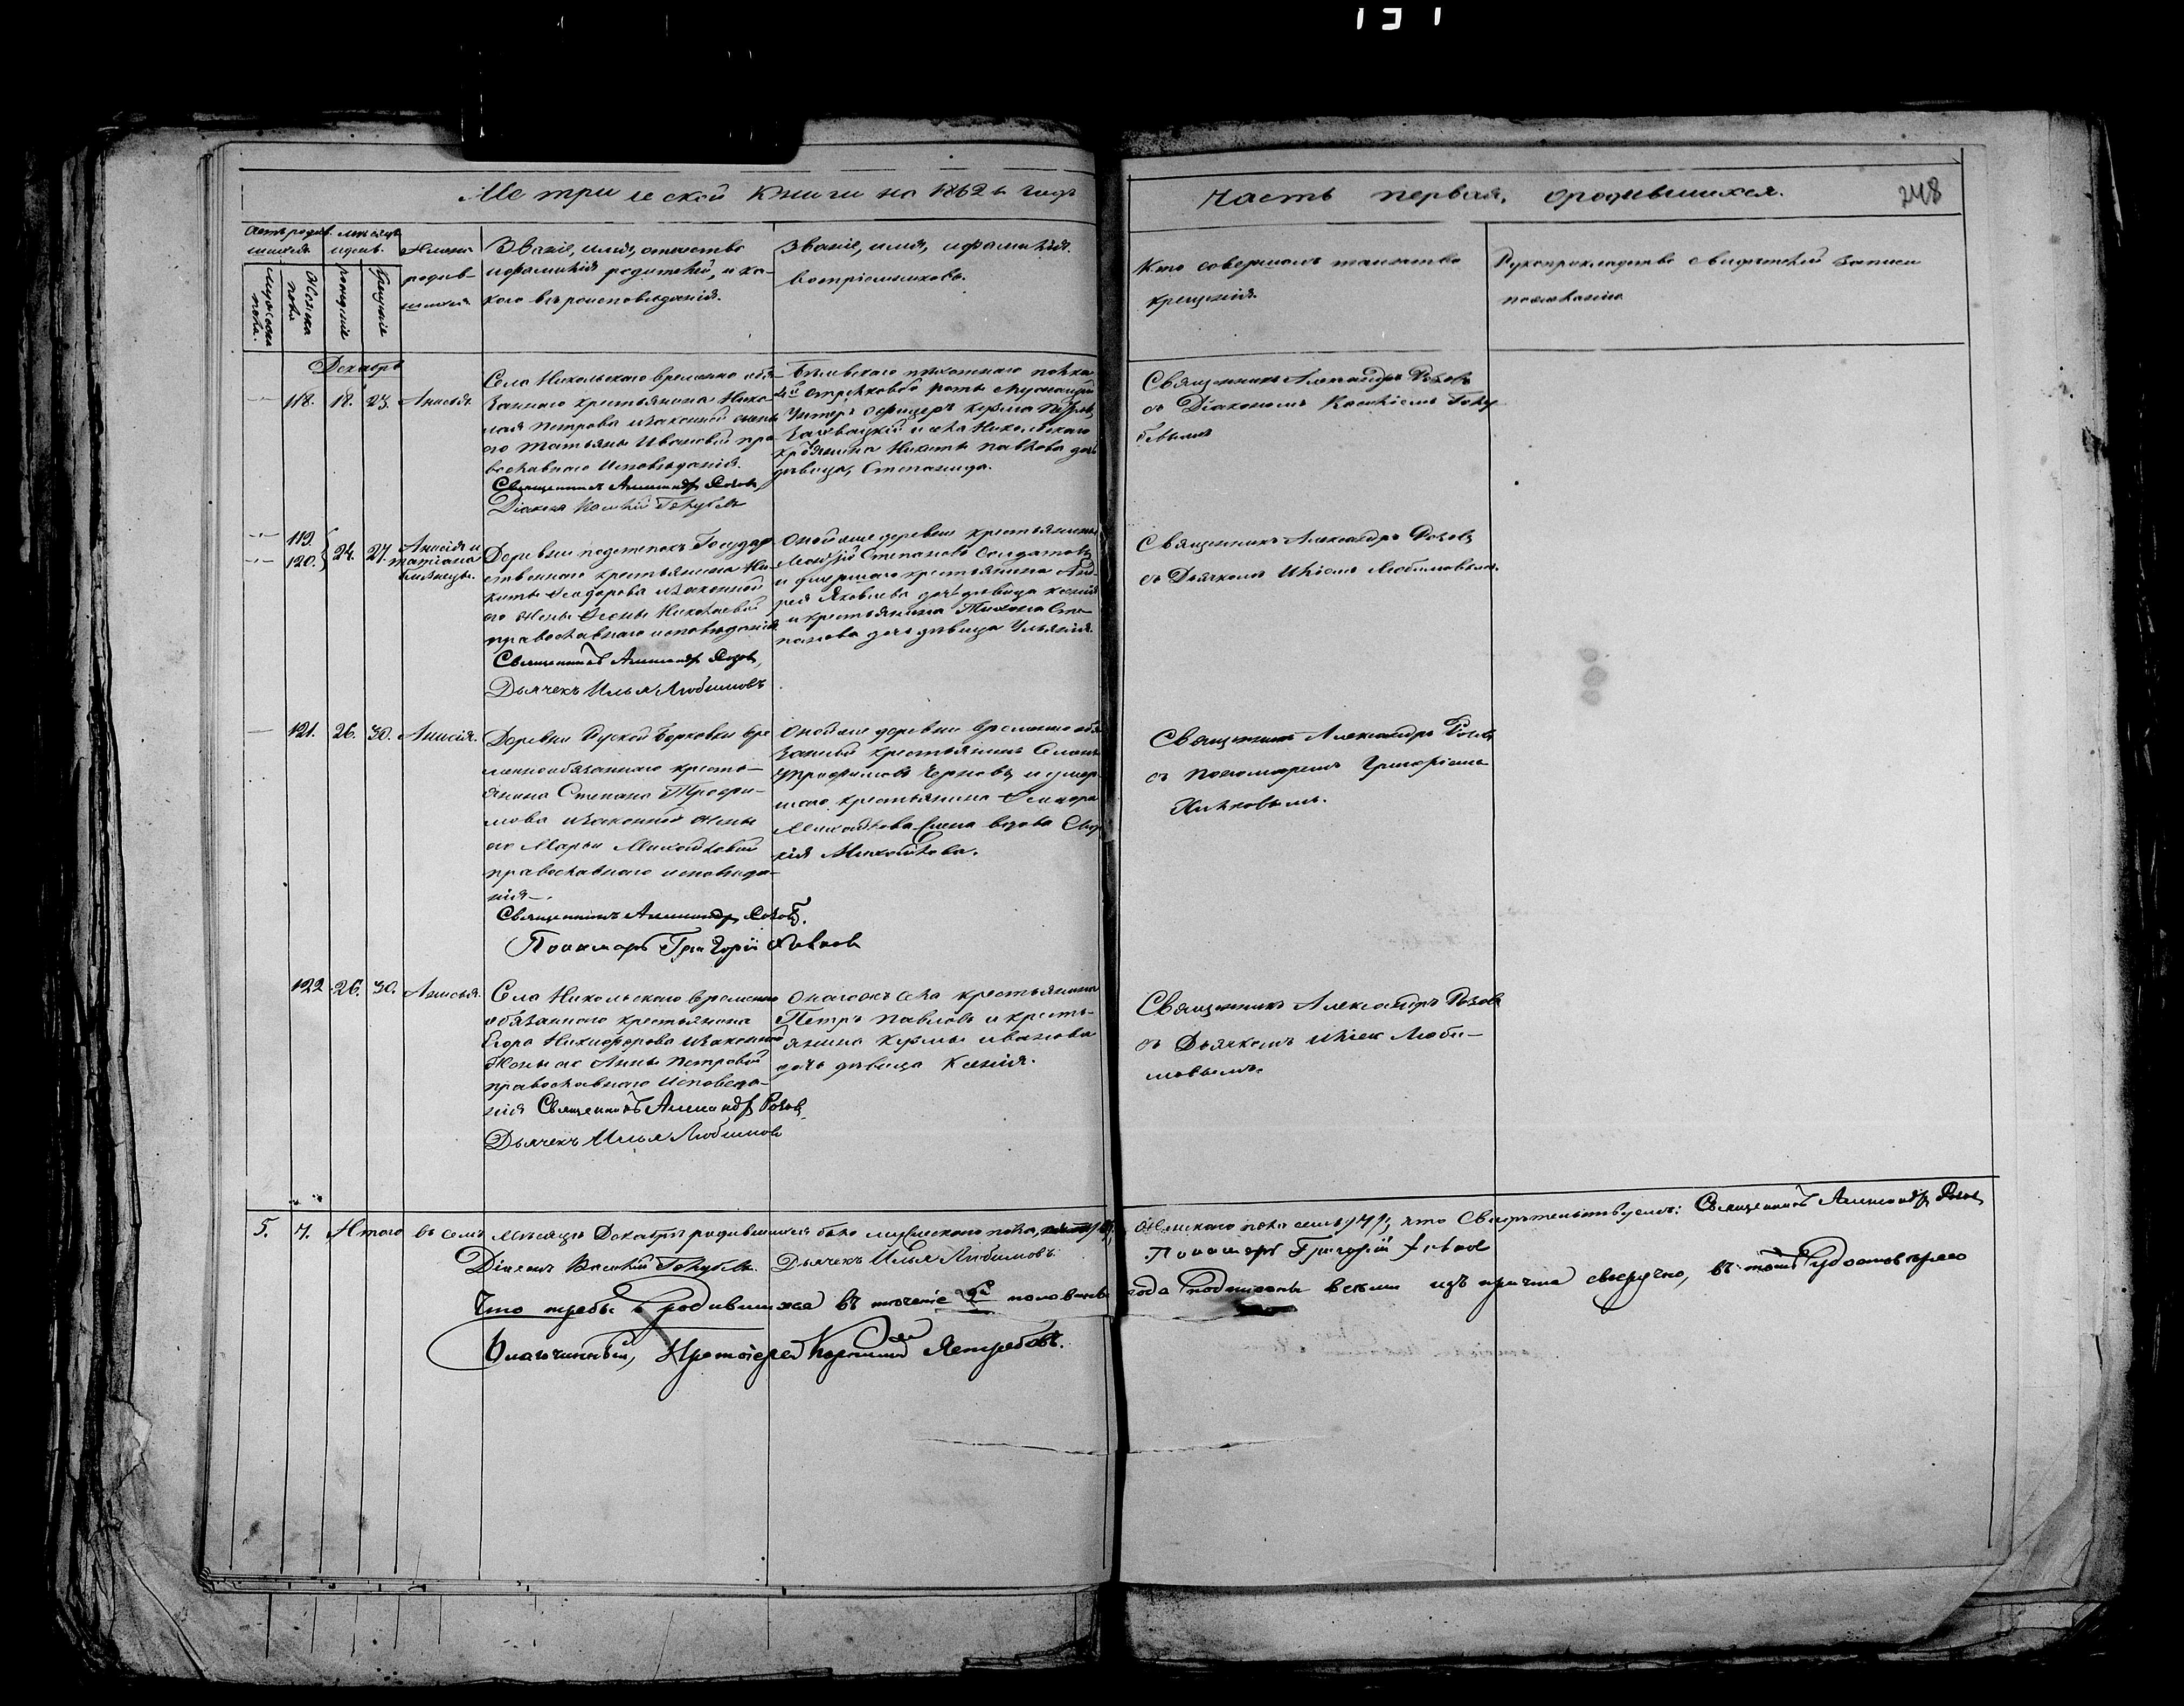 Метрической Книги на 1862й годъ
Часть первая, о родившихся.
248
Счетъ родив-
шихся
Мужеска пола.
Женска пола
Месяцъ и день.
рожденіе
Крещеніе
Имена
родив-
шихся
Званіе, имя, отчество
и фамилія родителей, и ка-
кого вѣроисповѣданія.
Званіе, имя, и фамилія
воспріемниковъ.
Кто совершалъ таинство
крещенія.
Рукоприкладство свидѣтелей записи
по желанію
Декабрь
118. 18. 23. Анисія.
Села Никольскаго временно обя-
заннаго крестьянина Нико-
лая Петрова и законной жены
его Татьяны Ивановой пра-
вославнаго исповѣданія.
Священникъ Александръ Розовъ
Діаконъ Василій Голубевъ
Бѣлевскаго пѣхотнаго полка
4й стрѣлковой роты
Унтеръ Офицеръ Кузма Петровъ
и села Никольскаго
крестьянина Никиты Павлова дочь
дѣвица, Степанида.
Священникъ Александръ Розовъ
съ Діакономъ Василіемъ Голу-
бевымъ
119.
120. 24. 27. Анисія и
Татіана
близнецы.
Деревни Государ-
ственнаго крестьянина Ни-
киты Феодорова и законной
его жены Николаевой
православнаго исповѣданія
Священникъ Александръ Розовъ,
Дьячекъ Илья Любимовъ
Оной же деревни крестьянинъ
Степановъ Солдатовъ
и умершаго крестьянина Анд-
рея Яковлева дочь дѣвица Ксенія
и крестьянина Тихона Сте-
панова дочь дѣвица Ульянія.
Священникъ Александръ Розовъ
съ Дьячкомъ Иліею Любимовымъ.
121. 26. 30. Анисія.
Деревни Русской Борковки вре
меннообязаннаго кресть-
янина Степана Трофи-
мова и законной жены
его Марьи Михайловой
православнаго исповѣда-
нія.
Священникъ Александръ Розовъ.
Пономарь Григорій Хивковъ
Оной же деревни временно обя
занный крестьянинъ
Трофимовъ Черновъ и умер-
шаго крестьянина Феодора
Михайлова вдова
Михайлова.
Священникъ Александръ Розовъ
съ пономаремъ Григоріемъ
Хивковымъ.
122 26. 30. Анисья.
Села Никольскаго временно
обязаннаго крестьянина
Егора Никифорова и законной
жены его Анны Петровой
православнаго исповѣда-
нія Священникъ Александръ Розовъ
Дьячекъ Илья Любимовъ
Онаго же села крестьянинъ
Петръ Павловъ и кресть-
янина Кузмы Иванова
дочь дѣвица Ксенія.
Священникъ Александръ Розовъ
съ Дьячкомъ Иліею Люби-
мовымъ.
5. 7. Итого въ семъ мѣсяцѣ Декабрѣ родившихся было мужескаго пола, женскаго пола семь /7/, что Свидѣтельствуемъ: Священникъ Александръ Розовъ
Діаконъ Василій Голубевъ. Дьячекъ Илья Любимовъ. Пономарь Григорій Хивковъ
Что требы о родившихся въ теченіе 2й половины года подписаны всеми изъ причта своеручно, въ томъ удостовѣряю
Благочинный, Протоіерей Корнилий Ястребовъ.